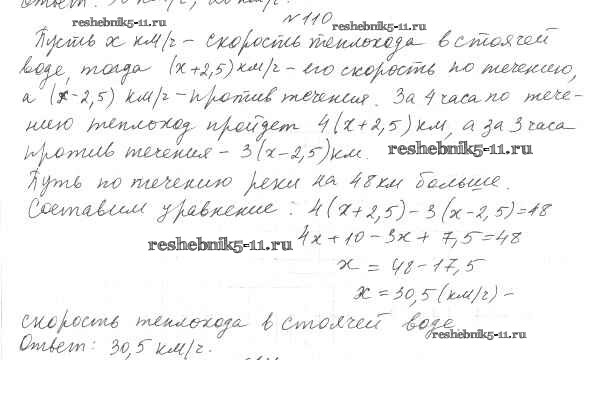 reshebnik5-11.ru
№110
reshebnik5-11.ru
Пусть х км/ч - скорость теплохода в стоячей
воде, тогда (х+2,5) км/ч - его скорость по течению,
а (х-2,5) км/ч - против течения. За 4 часа по тече-
нию теплоход пройдет 4(х+2,5) км, а за 3 часа
против течения - 3(х-2,5) км.
reshebnik5-11.ru
Путь по течению реки на 48 км больше.
Составим уравнение: 4(х+2,5)-3(х-2,5)=48
reshebnik5-11.ru
4х+10-3х+7,5=48
х = 48-17,5
х = 30,5 (км/ч) -
скорость теплохода в стоячей воде
reshebnik5-11.ru
Ответ: 30,5 км/ч.